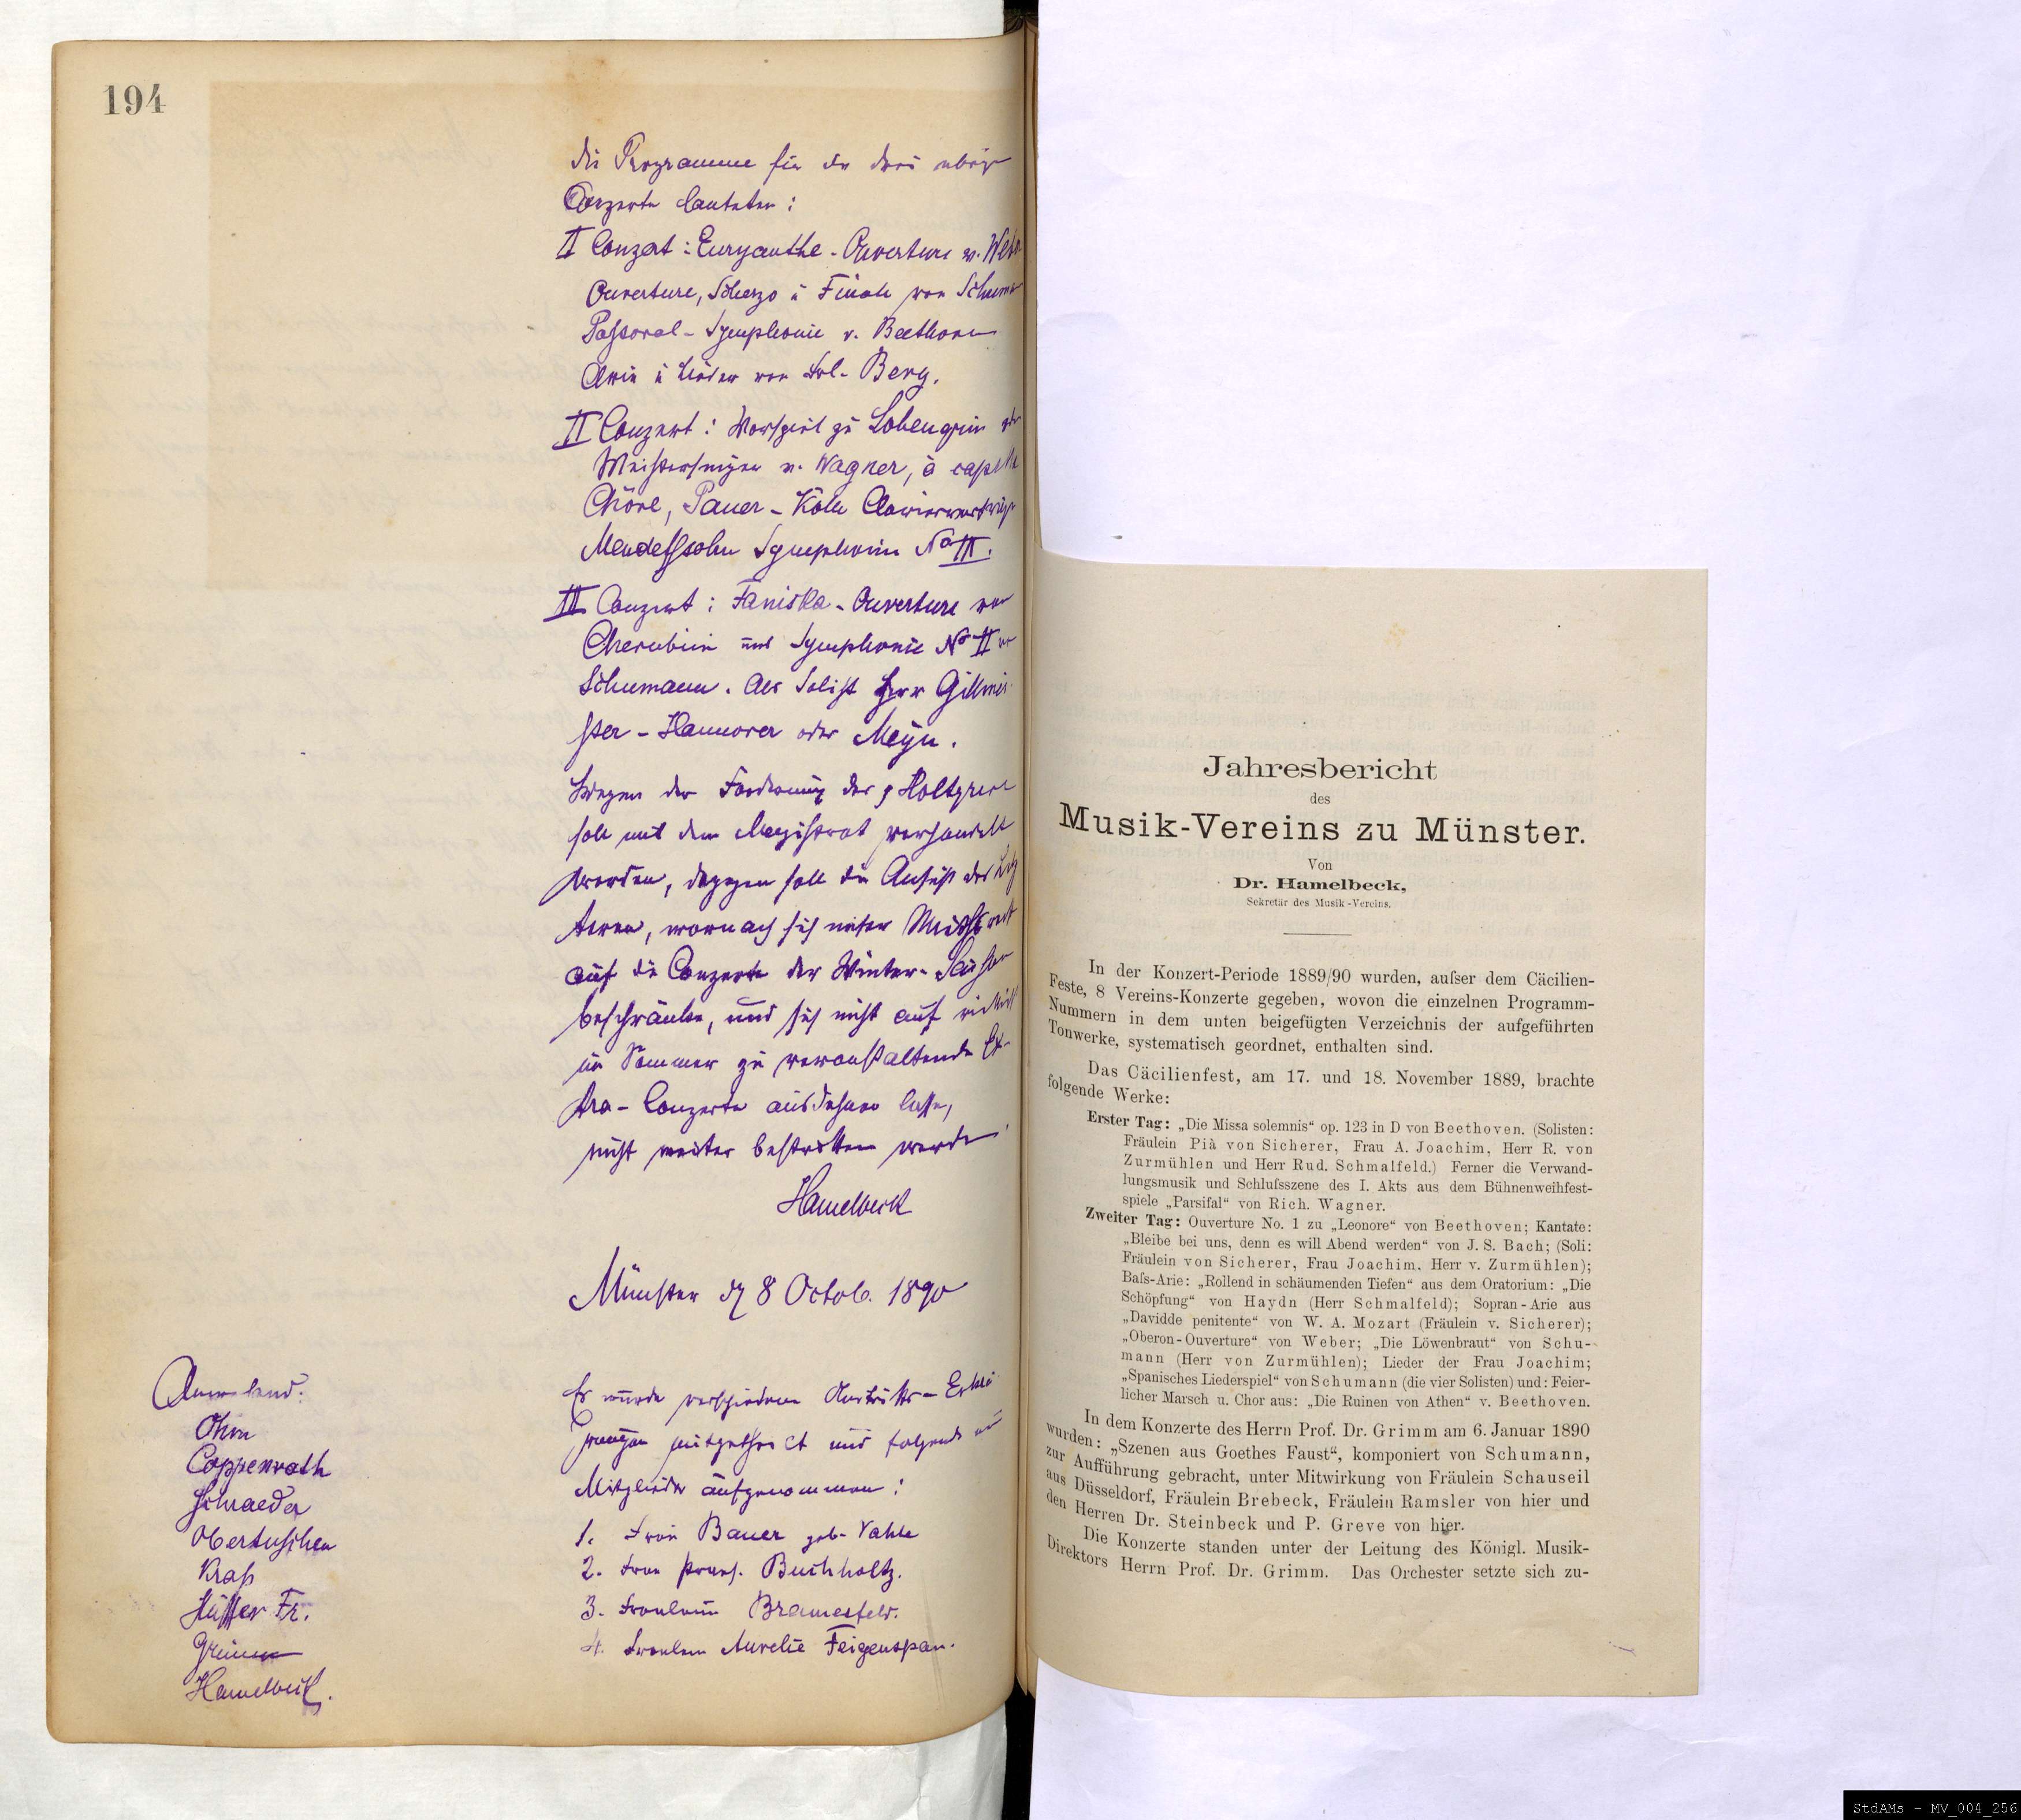 194
die Programme für die drei übrige
Conzerte lauteten:
I Conzert: Euryanthe-Ouverture v. Webe
Ouverture, Scherzo u Finale von Schuma
Pastoral-Symphonie v. Beethoven
Arie u Lieder von Frl. Berg.
II Conzert: Vorspiel zu Lohengrin oder
Meistersinger v. Wagner, à capella
Chöre, Pauer-Köln Claviervorträge
Mendelssohn Symphonie No III.
III Conzert: Faniska-Ouverture von
Cherubini und Symphonie No II v
Schumann. Als Solist Herr Gillmei
ster-Hannover oder Meyn.
Wegen der Forderung des p Holtgreve
soll mit dem Magistrat verhandelt
werden, dagegen soll die Ansicht des
teren, wornach sich unser
auf die Conzerte der Winter-Saison
beschränke, und sich nicht auf
im Sommer zu veranstaltende Ex-
tra-Conzerte ausdehnen lasse,
nicht weiter bestritten werden.
Hamelbeck
Münster d 8 Octob. 1890
Anwesend:
Ohm
Coppenrath
Schraeder
Obertüschen
Krass
Hüffer Fr.
Grimm
Hamelbeck.
Es wurde verschiedene Austritts-Erklä
rungen mitgetheilt und folgende
Mitglieder aufgenommen:
1. Frau Bauer geb. Vahle
2. Frau Buchholtz.
3. Fräulein Bramesfeld.
4. Fräulein Aurelie Feigenspan.
Jahresbericht
des
Musik-Vereins zu Münster.
Von
Dr. Hamelbeck,
Sekretär des Musik-Vereins.
In der Konzert-Periode 1889/90 wurden, aufser dem Cäcilien-
Feste, 8 Vereins-Konzerte gegeben, wovon die einzelnen Programm-
Nummern in dem unten beigefügten Verzeichnis der aufgeführten
Tonwerke, systematisch geordnet, enthalten sind.
Das Cäcilienfest, am 17. und 18. November 1889, brachte
folgende Werke:
Erster Tag: „Die Missa solemnis“ op. 123 in D von Beethoven. (Solisten:
Fräulein Pià von Sicherer, Frau A. Joachim, Herr R. von
Zurmühlen und Herr Rud. Schmalfeld.) Ferner die Verwand-
lungsmusik und Schlufsszene des I. Akts aus dem Bühnenweihfest-
spiele „Parsifal“ von Rich. Wagner.
Zweiter Tag: Ouverture No. 1 zu „Leonore“ von Beethoven; Kantate:
„Bleibe bei uns, denn es will Abend werden“ von J. S. Bach; (Soli:
Fräulein von Sicherer, Frau Joachim, Herr v. Zurmühlen);
Bafs-Arie: „Rollend in schäumenden Tiefen“ aus dem Oratorium: „Die
Schöpfung“ von Haydn (Herr Schmalfeld); Sopran-Arie aus
„Davidde penitente“ von W. A. Mozart (Fräulein v. Sicherer);
„Oberon-Ouverture“ von Weber; „Die Löwenbraut“ von Schu-
mann (Herr von Zurmühlen); Lieder der Frau Joachim;
„Spanisches Liederspiel“ von Schumann (die vier Solisten) und: Feier-
licher Marsch u. Chor aus: „Die Ruinen von Athen“ v. Beethoven.
In dem Konzerte des Herrn Prof. Dr. Grimm am 6. Januar 1890
wurden: „Szenen aus Goethes Faust“, komponiert von Schumann,
zur Aufführung gebracht, unter Mitwirkung von Fräulein Schauseil
aus Düsseldorf, Fräulein Brebeck, Fräulein Ramsler von hier und
den Herren Dr. Steinbeck und P. Greve von hier.
Die Konzerte standen unter der Leitung des Königl. Musik-
Direktors Herrn Prof. Dr. Grimm. Das Orchester setzte sich zu-
StdAMs - MV_004_256